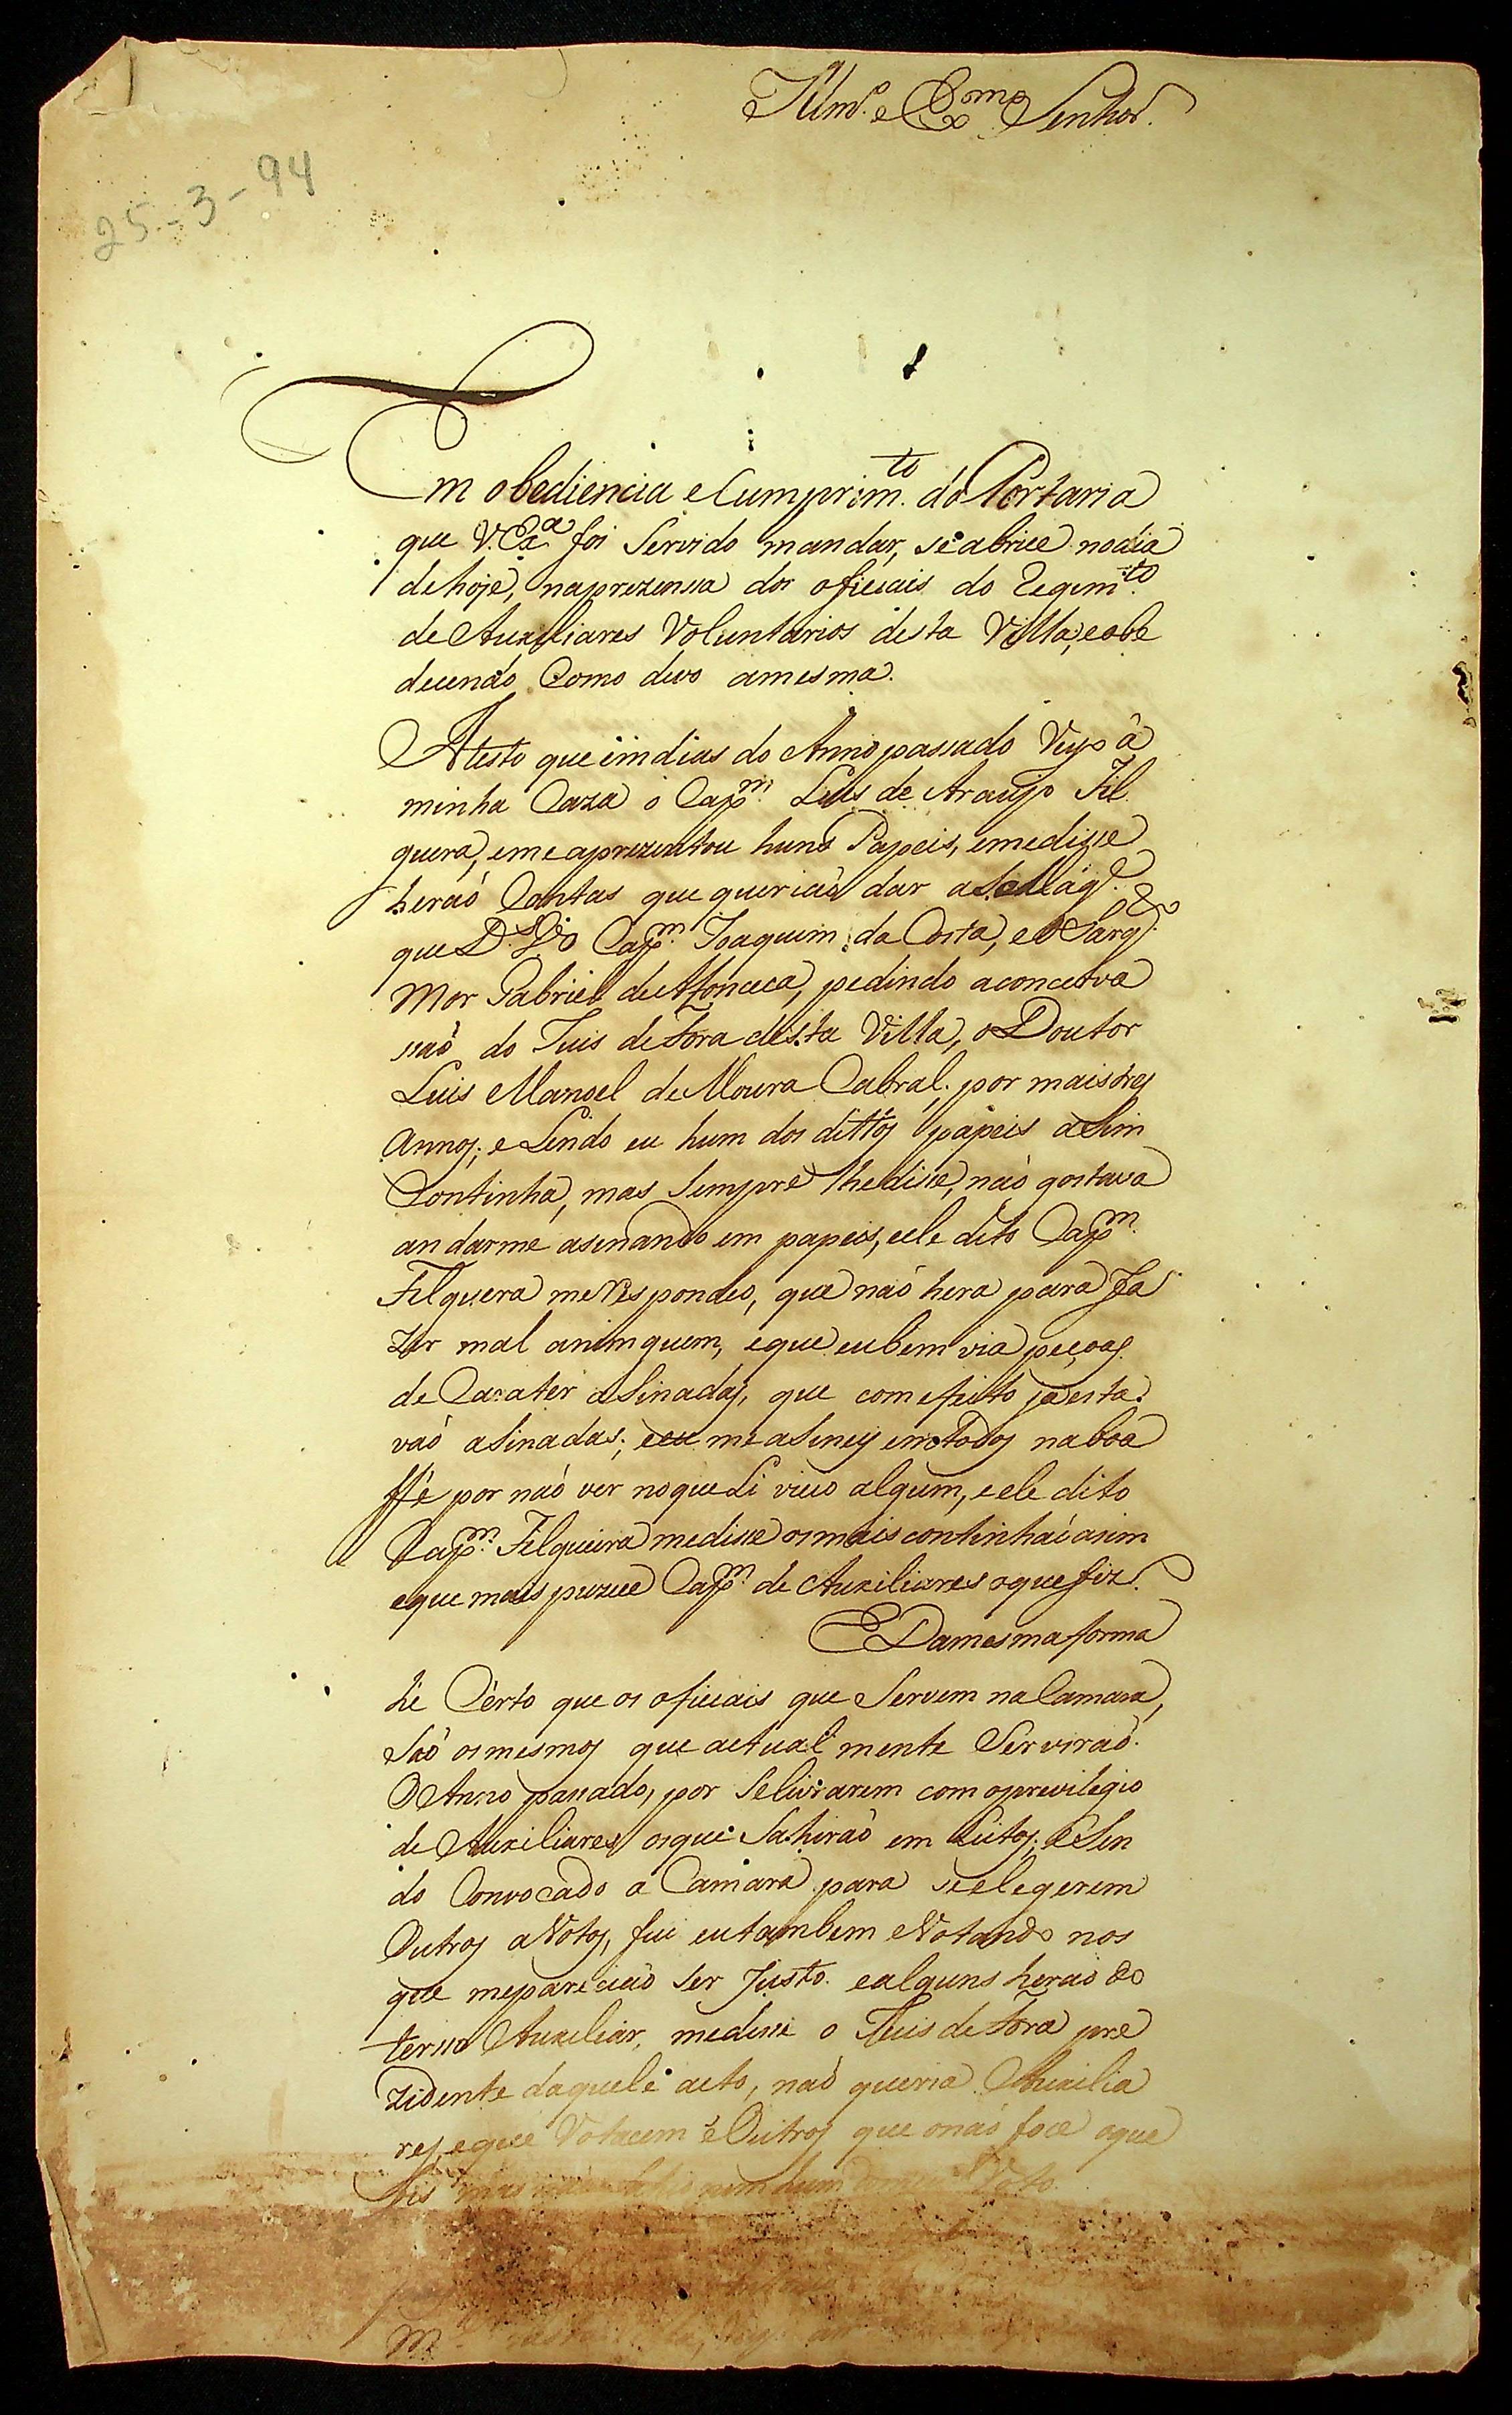 Illmo. e Exmo. Senhor.
25-3-94
Em obediencia e Cumprimto. da Portaria
que V. Exa. foi Servido mandar, se abrice no dia
de hoje, na prezensa dos oficiais do Regimto.
de Auxiliares Voluntarios desta Villa, e obe
decendo Como devo a mesma.
Atesto que em dias do Anno passado Veyo â
minha Caza o Capm. Luis de Araujo Fil
quera, eme aprezentou huns Papeis, eme disse
heraó Contas que queriaó dar a S. Mage.
que D.s G.e o Capm. Joaquim da Costa, e o Sargto.
Mor Gabriel de Afonceca, pedindo a concerva
ssaó do Juis de fora desta Villa, o Doutor
Luis Manoel de Moura Cabral, por mais tres
Annos; e Lendo eu hum dos dittos papeis aSim
Continha, mas Sempre lhe disse, naó gostava
andarme asinando em papeis, e ele dito Capm.
Filquera me Respondeo, que naó hera para fa
zer mal a ninguem, e que eu bem via peçoas
de Carater aSinadas, que com efeito ja esta
vaó aSinadas; e eu me aSiney em todos na boa
ffé por naó ver no que Li vicio algum, e ele dito
Capm. Filgueira me disse os mais continhaó asim
e que mais puzece Capm. de Auxiliares o que fiz.
E Da mesma forma
hé Cérto que os oficiais que Servem na Camara,
Saó os mesmos que actualmente Serviraó
O Anno passado, por Se livrarem com o previlegio
de Auxiliares os que Sahiraó em Leitos; e Sen
do Convocado a Camara para se elegerem
Outros a Votos, fui eu tambem e Votando nos
que me pareciaó ser Justo. e alguns heraó do
tersso Auxeliar, me disse o Juis de fora pre
zidente daquele acto, naó queria Auxilia
res, e que Votacem e Outros que o naó foce o que
fis mas nem hum Voto